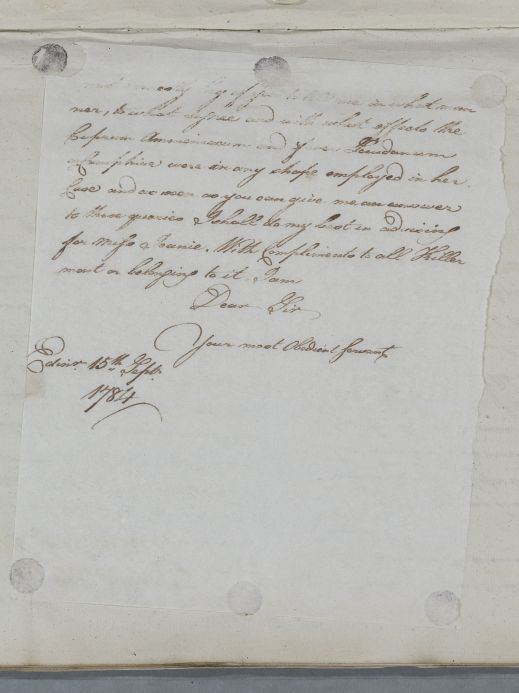 must a beg of you to tell me in what man
ner, to what degree and with what effects the
Cuprum Ammoniacum and your Laudanum
were in any shape employed in her
Case and as soon as you can give me an answer
to these queries I shall do my best in advising
for Miss Jeanie. With Compliments to all Killer
mont or belonging to it. I am
Dear Sir
Your most Obedient Servant
Edinr. 15th Septr.
1784